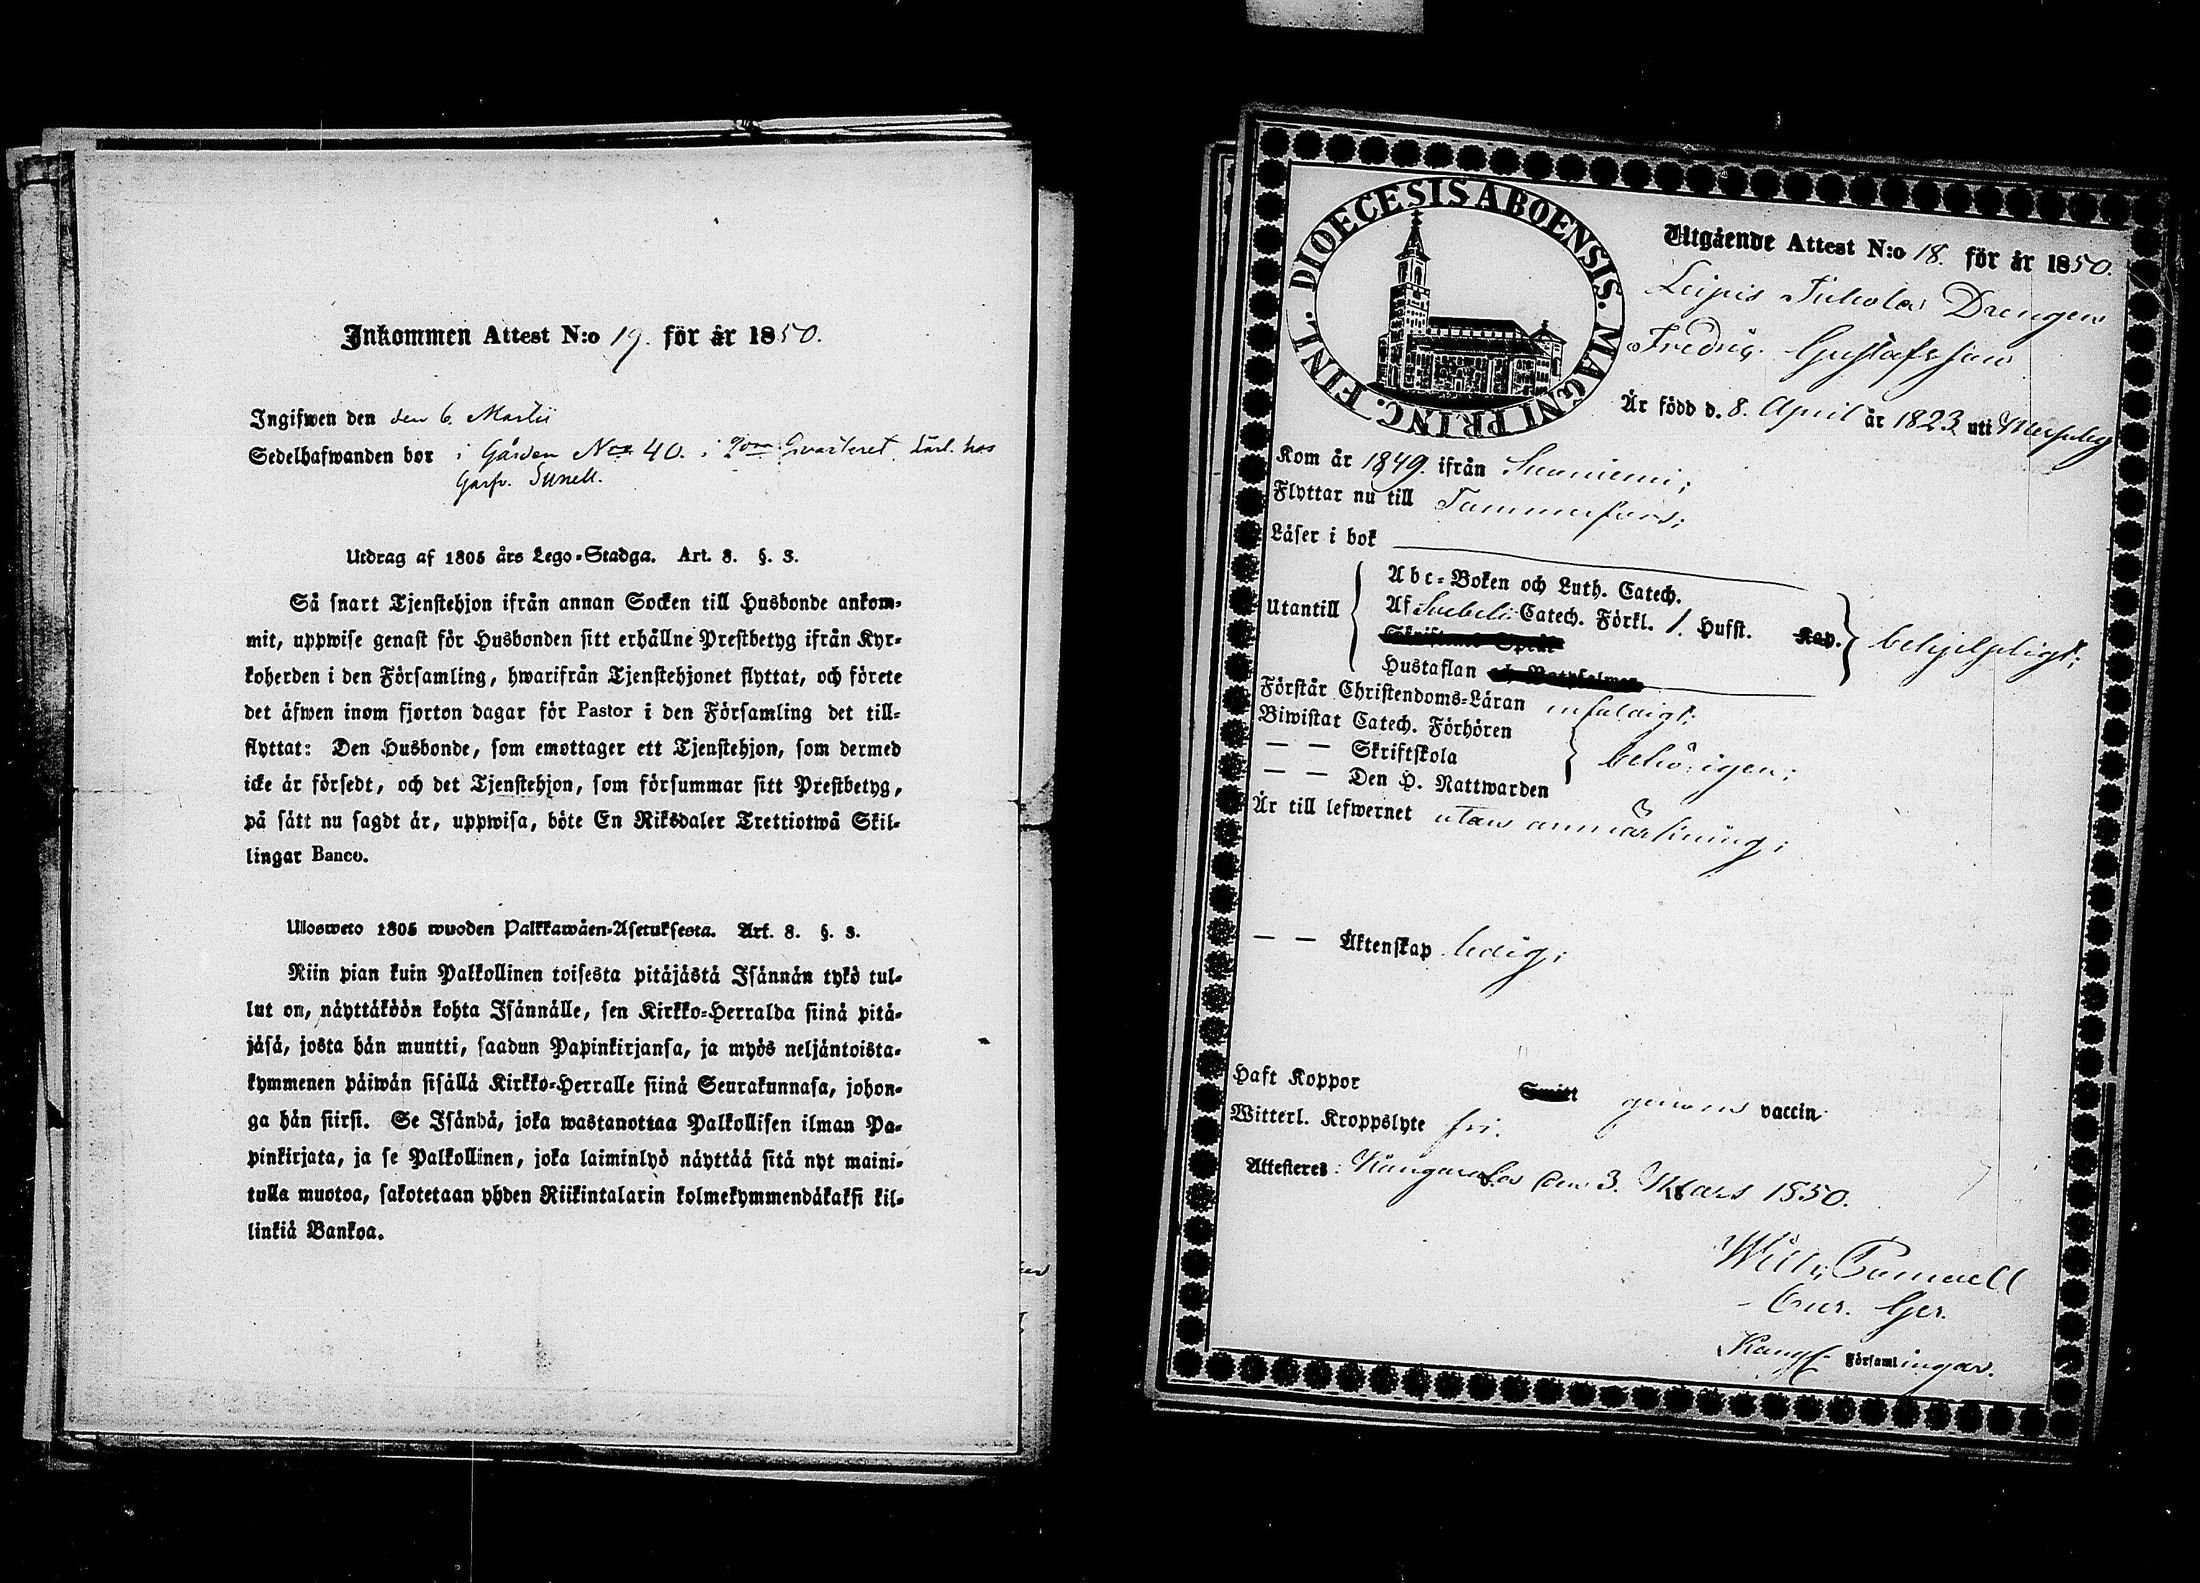 Inkommen Attest N:o 19. för år 1850.
Ingifwen den den 6. Martii
Sedelhafwanden bor i Gården No 40. i Qvarteret hos
Garfv. Sunell.
Utdrag af 1805 års Lego-Stadga. Art. 8. §. 3.
Så snart Tjenstehjon ifrån annan Socken till Husbonde ankom-
mit, uppwise genast för Husbonden sitt erhållne Prestbetyg ifrån Kyr-
koherden i den Församling, hwarifrån Tjenstehjonet flyttat, och förete
det äfwen inom fjorton dagar för Pastor i den Församling det till-
flyttat: Den Husbonde, som emottager ett Tjenstehjon, som dermed
icke är försedt, och det Tjenstehjon, som försummar sitt Prestbetyg,
på sätt nu sagdt är, uppwisa, böte En Riksdaler Trettiotwå Skil-
lingar Banco.
Ulosweto 1805 wuoden Palkkawäen-Asetuksesta. Art. 8. §. 3.
Niin pian kuin Palkollinen toisesta pitäjästä Isännän tykö tul-
lut on, näyttäköön kohta Isännälle, sen Kirkko-Herralda siinä pitä-
jäsä, josta hän muutti, saadun Papinkirjansa, ja myös neljäntoista-
kymmenen päiwän sisällä Kirkko-Herralle siinä Seurakunnasa, johon-
ga hän siirsi. Se Isändä, joka wastanottaa Palkollisen ilman Pa-
pinkirjata, ja se Palkollinen, joka laiminlyö näyttää sitä nyt maini-
tulla muotoa, sakotetaan yhden Riikintalarin kolmekymmendäkaksi kil-
linkiä Bankoa.
DIOECESIS ABOENSIS. MAGNI PRINC. FINL.
Utgående Attest N:o 18. för år 1850.
Drengen
Fredrig Gustafsson
Är född d. 8. April år 1823 uti
Kom år 1849. ifrån Suoniemi;
Flyttar nu till Tammerfors;
Läser i bok
Utantill
Abc-Boken och Luth. Catech.
Af Svebelii Catech. Förkl. 1. Hufst. Kap.
Hustaflan
behjelpligt;
Förstår Christendoms-Läran enfaldigt;
Biwistat Catech. Förhören
— — Skriftskola
— — Den H. Nattwarden
behörigen;
Är till lefwernet utan anmärkning;
— — Äktenskap ledig;
Haft Koppor genom vaccin;
Witterl. Kroppslyte fri.
Attesteres: Kangasala den 3. Mars 1850.
Församlingar.